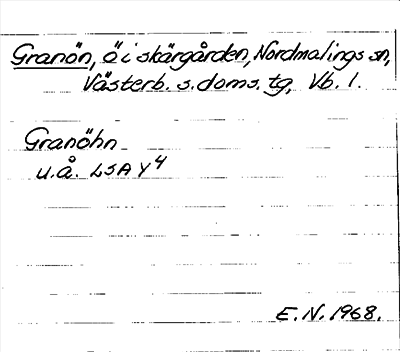 Granön, ö i skärgården, Nordmalings sn,
Västerb. s. doms. tg, Vb. l.
Granöhn
u.å. LSA Y4
E.N. 1968.